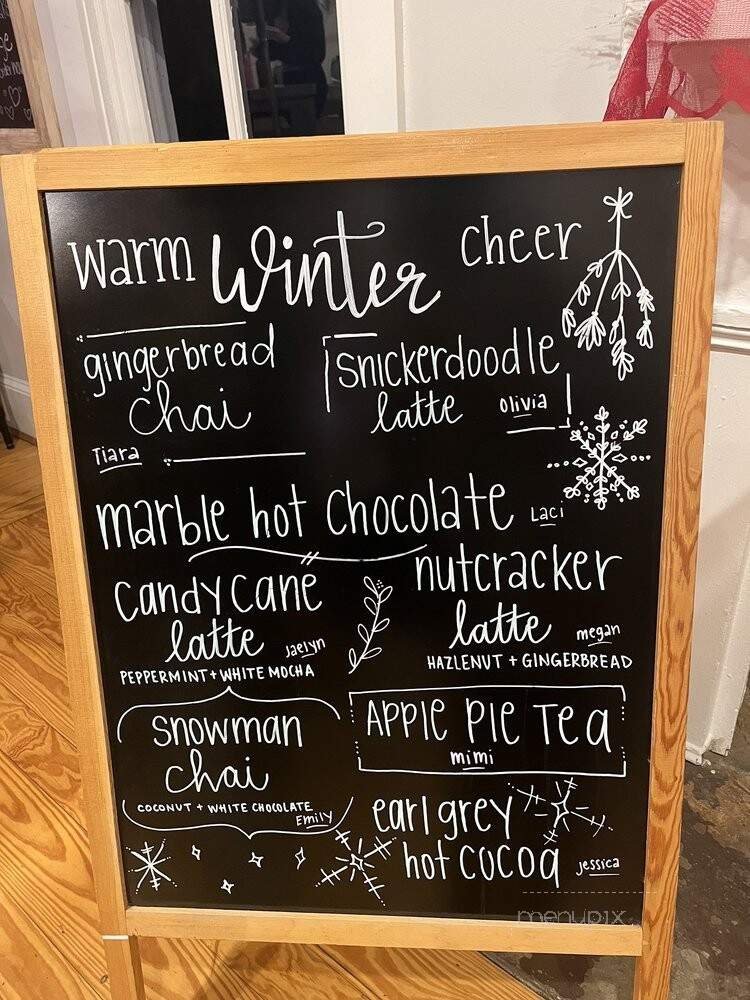 warm Winter cheer
gingerbread
chai
Tiara
snickerdoodle
latte olivia
marble hot chocolate Laci
candy cane
latte jaelyn
PEPPERMINT + WHITE MOCHA
nutcracker
latte megan
HAZLENUT + GINGERBREAD
snowman
chai
COCONUT + WHITE CHOCOLATE
Emily
APPLE PIE TEA
mimi
earl grey
hot cocoa jessica
menupix